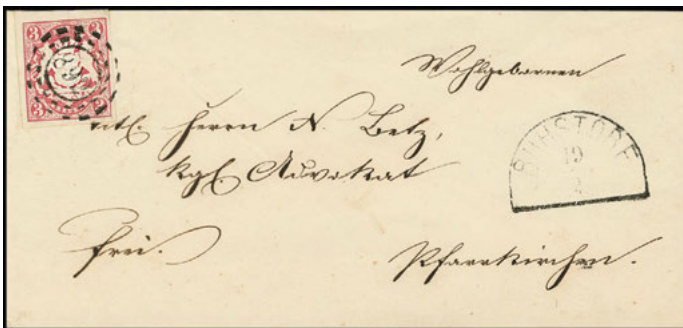 3 3
3
Wohlgebornen
titl. Herrn N. Betz,
kgl. Advokat
RUHSTORF
19
frei.
Pfarrkirchen.